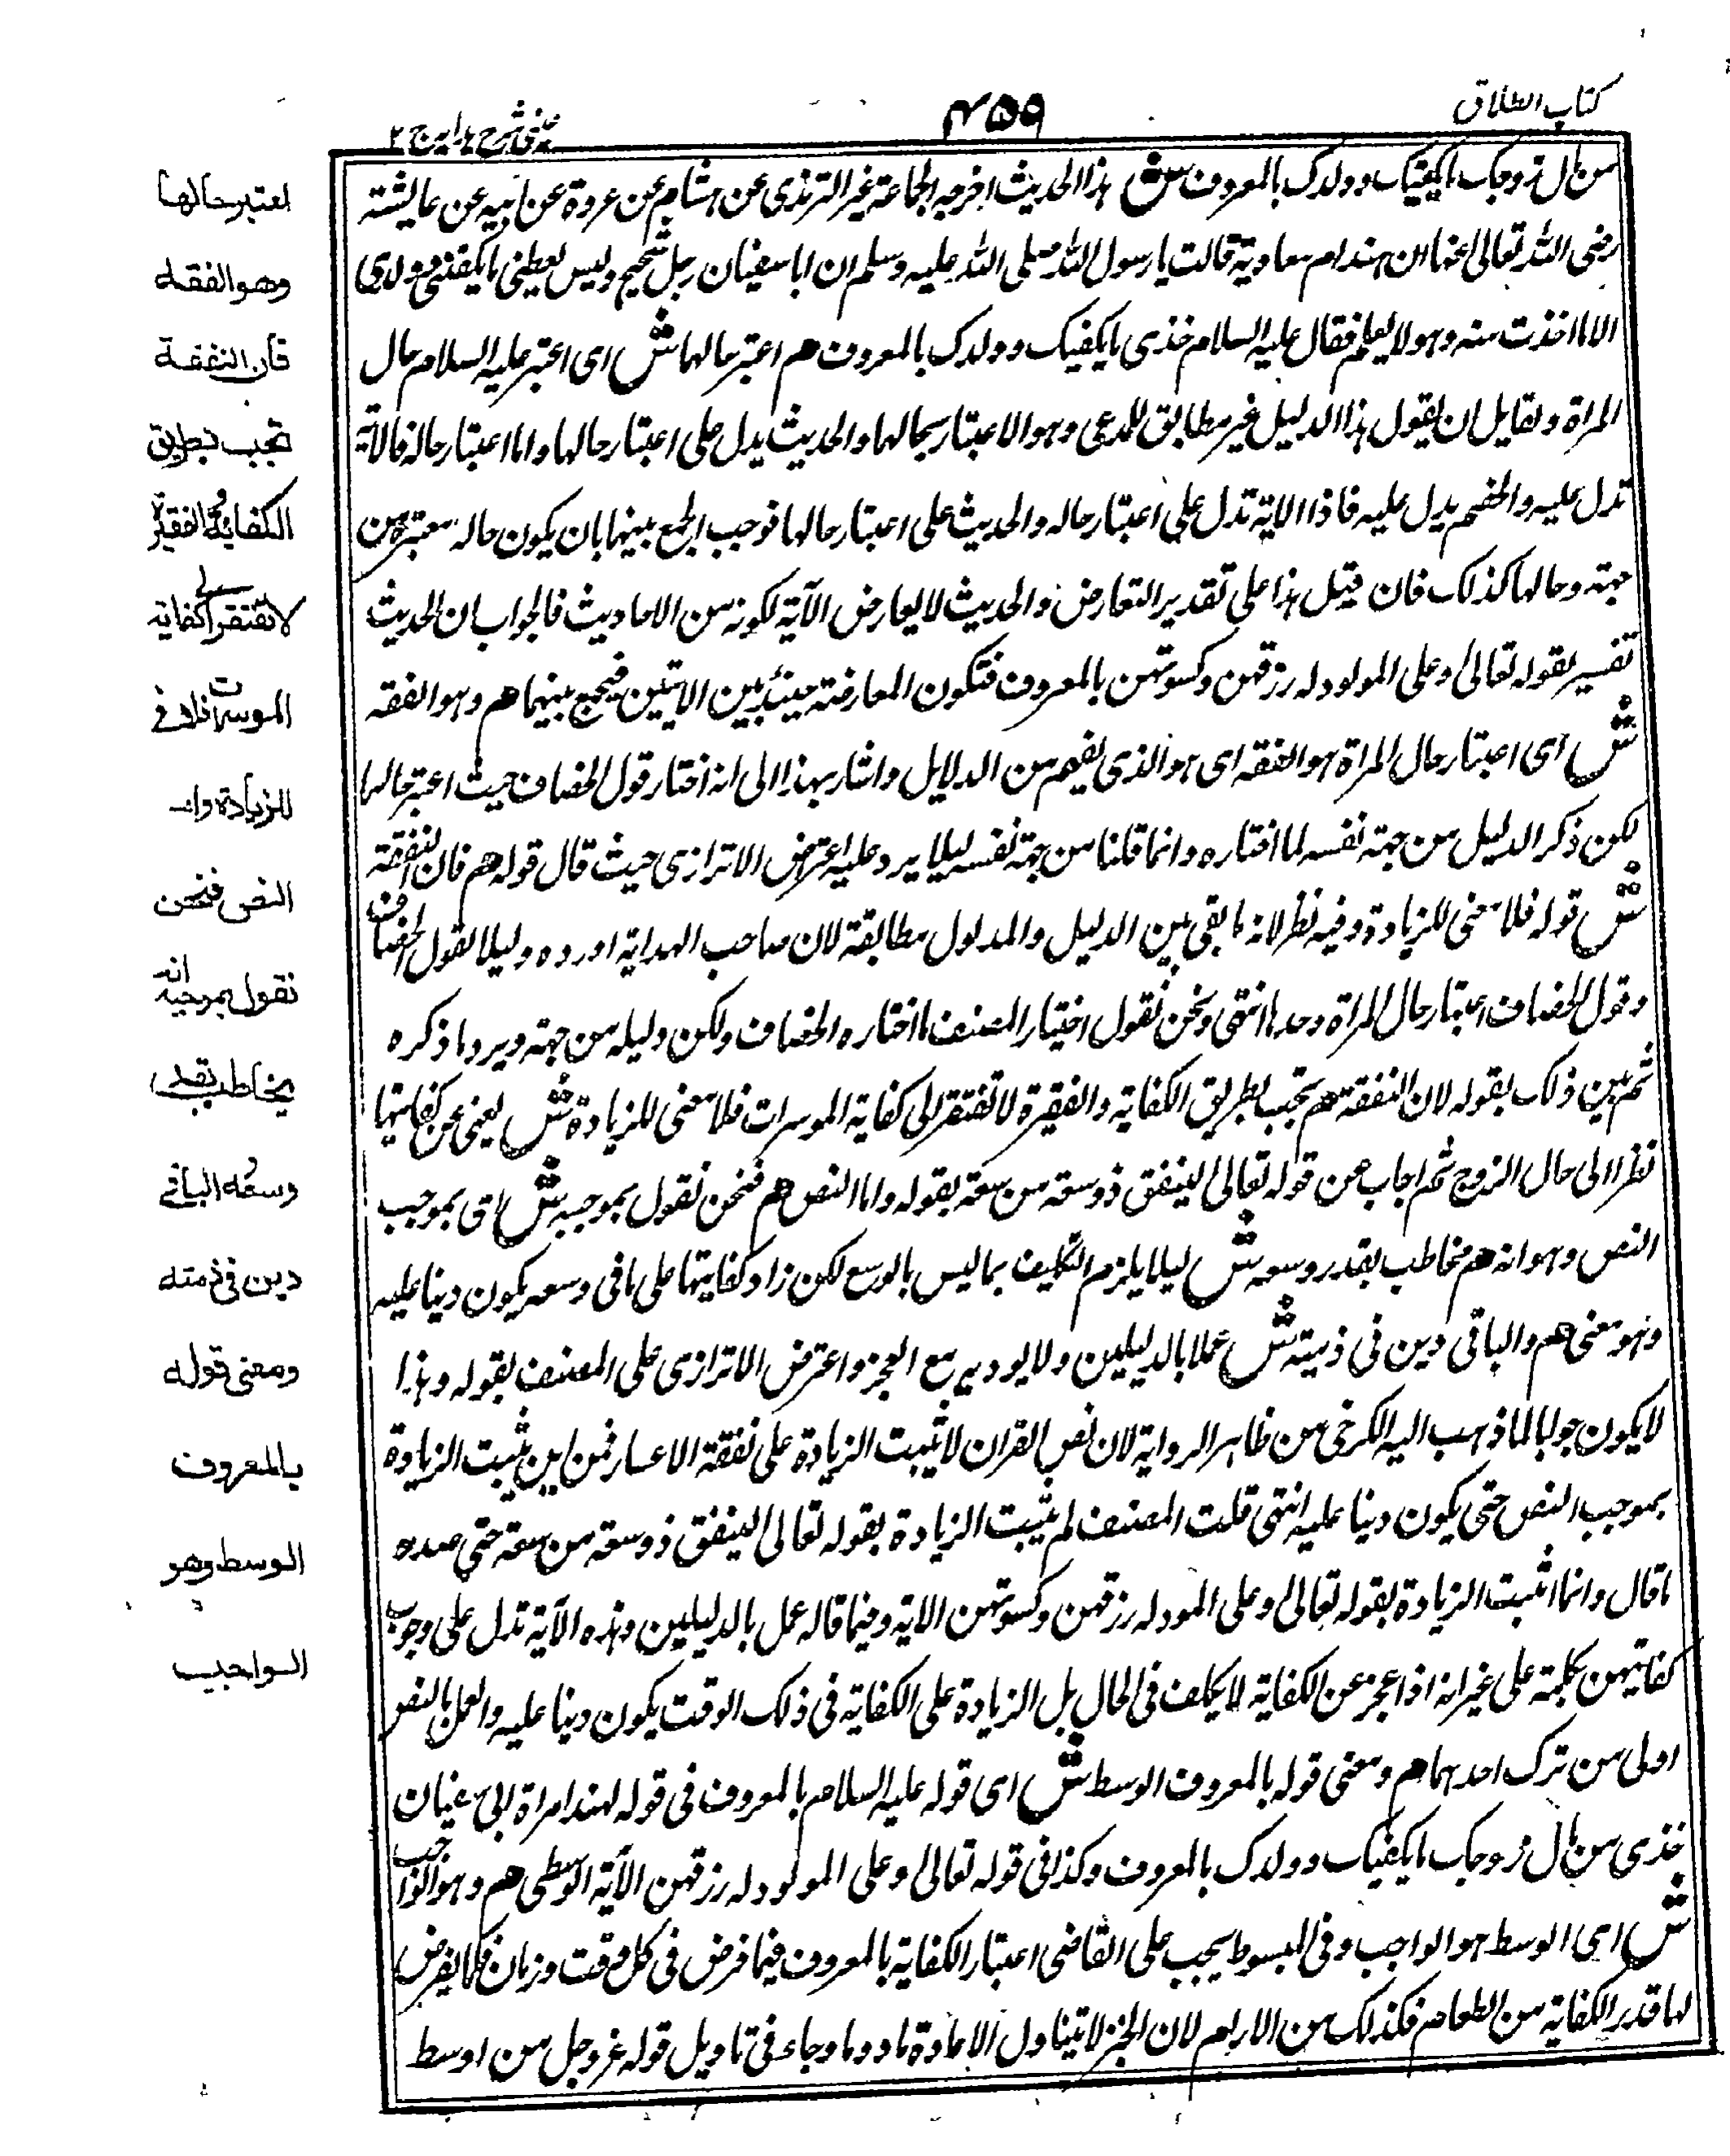 كتاب الطلاق
٤٥٩
عينى شرح هدايه ج ٢
من مال زوجك ما يكفيك وولدك بالمعروف ش هذا الحديث اخرجه الجماعة غير الترمذى عن هشام عن عروة عن ابيه عن عايشة
رضى الله تعالى عنها ان هندام معاوية قالت يا رسول الله صلى الله عليه وسلم ان ابا سفيان رجل شحيح وليس يعطينى ما يكفنى وولدى
الا ما اخذت منه وهو لا يعلم فقال عليه السلام خذى ما يكفيك وولدك بالمعروف هم اعتبر حالها ش اى اعتبر عليه السلام حال
المراة ولقايل ان يقول هذا الدليل غير مطابق للمدعى وهو الاعتبار بحالهما والحديث يدل على اعتبار حالها واما اعتبار حاله فالآية
تدل عليه والخصم يدل عليه فاذا الاية تدل على اعتبار حاله والحديث على اعتبار حالها فوجب الجمع بينهما بان يكون حاله معتبرة من
جهته وحالها كذلك فان قيل هذا على تقدير التعارض والحديث لا يعارض الآية لكونه من الاحاديث فالجواب ان الحديث
تفسير بقوله تعالى وعلى المولود له رزقهن وكسوتهن بالمعروف فتكون المعارضة حينئذ بين الايتين فيجمع بينهما هم وهو الفقه
ش اى اعتبار حال المراة هو الفقه اى هو الذى يفهم من الدلايل واشار بهذا الى انه اختار قول الخصاف حيث اعتبر حالها
لكن ذكر الدليل من جهة نفسه لما اختاره وانما قلنا من جهة نفسه ليلا يرد عليه اعتراض الاترازى حيث قال قوله هم فان النفقة
ش قوله فلا معنى للزيادة وفيه نظر لانه ما بقى بين الدليل والمدلول مطابقة لان صاحب الهداية اورده دليلا لقول الخصاف
وقول الخصاف اعتبار حال المراة وحدها انتهى ونحن نقول اختيار المصنف ما اختاره الخصاف ولكن دليله من جهته ويرد ما ذكره
ثم بين ذلك بقوله لان النفقة هم تجب بطريق الكفاية والفقيرة لا تفتقر الى كفاية الموسرات فلا معنى للزيادة ش يعنى عن كفايتها
نظرا الى حال الزوج ثم اجاب عن قوله تعالى لينفق ذو سعة من سعته بقوله واما النص هم فنحن نقول بموجبه ش اى بموجب
النص وهو انه هم مخاطب بقدر وسعه ش ليلا يلزم التكليف بما ليس بالوسع لكن زاد كفايتها على ما فى وسعه يكون دينا عليه
وهو معنى هم والباقى دين فى ذمته ش عملا بالدليلين ولا يوديه مع العجز واعترض الاترازى على المصنف بقوله وهذا
لا يكون جوابا لما ذهب اليه الكرخى من ظاهر الرواية لان نص القران لا يثبت الزيادة على نفقة الاعسار فمن اين يثبت الزيادة
بموجب النص حتى يكون دينا عليه انتهى قلت المصنف لم يثبت الزيادة بقوله تعالى لينفق ذو سعة من سعته حتى
ما قال وانما اثبت الزيادة بقوله تعالى وعلى المودله رزقهن وكسوتهن الاية وفيما قاله عمل بالدليلين وهذه الآية تدل على وجوب
كفايتهن بكلمة على غير انه اذا عجز عن الكفاية لا يكلف فى الحال بل الزيادة على الكفاية فى ذلك الوقت يكون دينا عليه والعمل بالنص
اولى من ترك احدهما هم ومعنى قوله بالمعروف الوسط ش اى قوله عليه السلام بالمعروف فى قوله لهند امراة ابى سفيان
خذى من مال زوجك ما يكفيك وولدك بالمعروف وكذا فى قوله تعالى وعلى المولود له رزقهن الآية الوسطى هم وهو الواجب
ش اى الوسط هو الواجب وفى المبسوط يجب على القاضى اعتبار الكفاية بالمعروف فيما فرض فى كل وقت وزمان فكما يفرض
لها قدر الكفاية من الطعام فكذلك من الادام لان الخبز لا يتناول الا مادوما وجاء فى تاويل قوله عز وجل من اوسط
اعتبر حالها
وهو الفقه
فان النفقة
تجب بطريق
الكفاية والفقيرة
لا تفتقر الى كفاية
الموسرات فلا معنى
للزيادة واما
النص فنحن
نقول بموجبه انه
يخاطب بقدر
وسعه الباقى
دين فى ذمته
ومعنى قوله
بالمعروف
الوسط وهو
الواجب